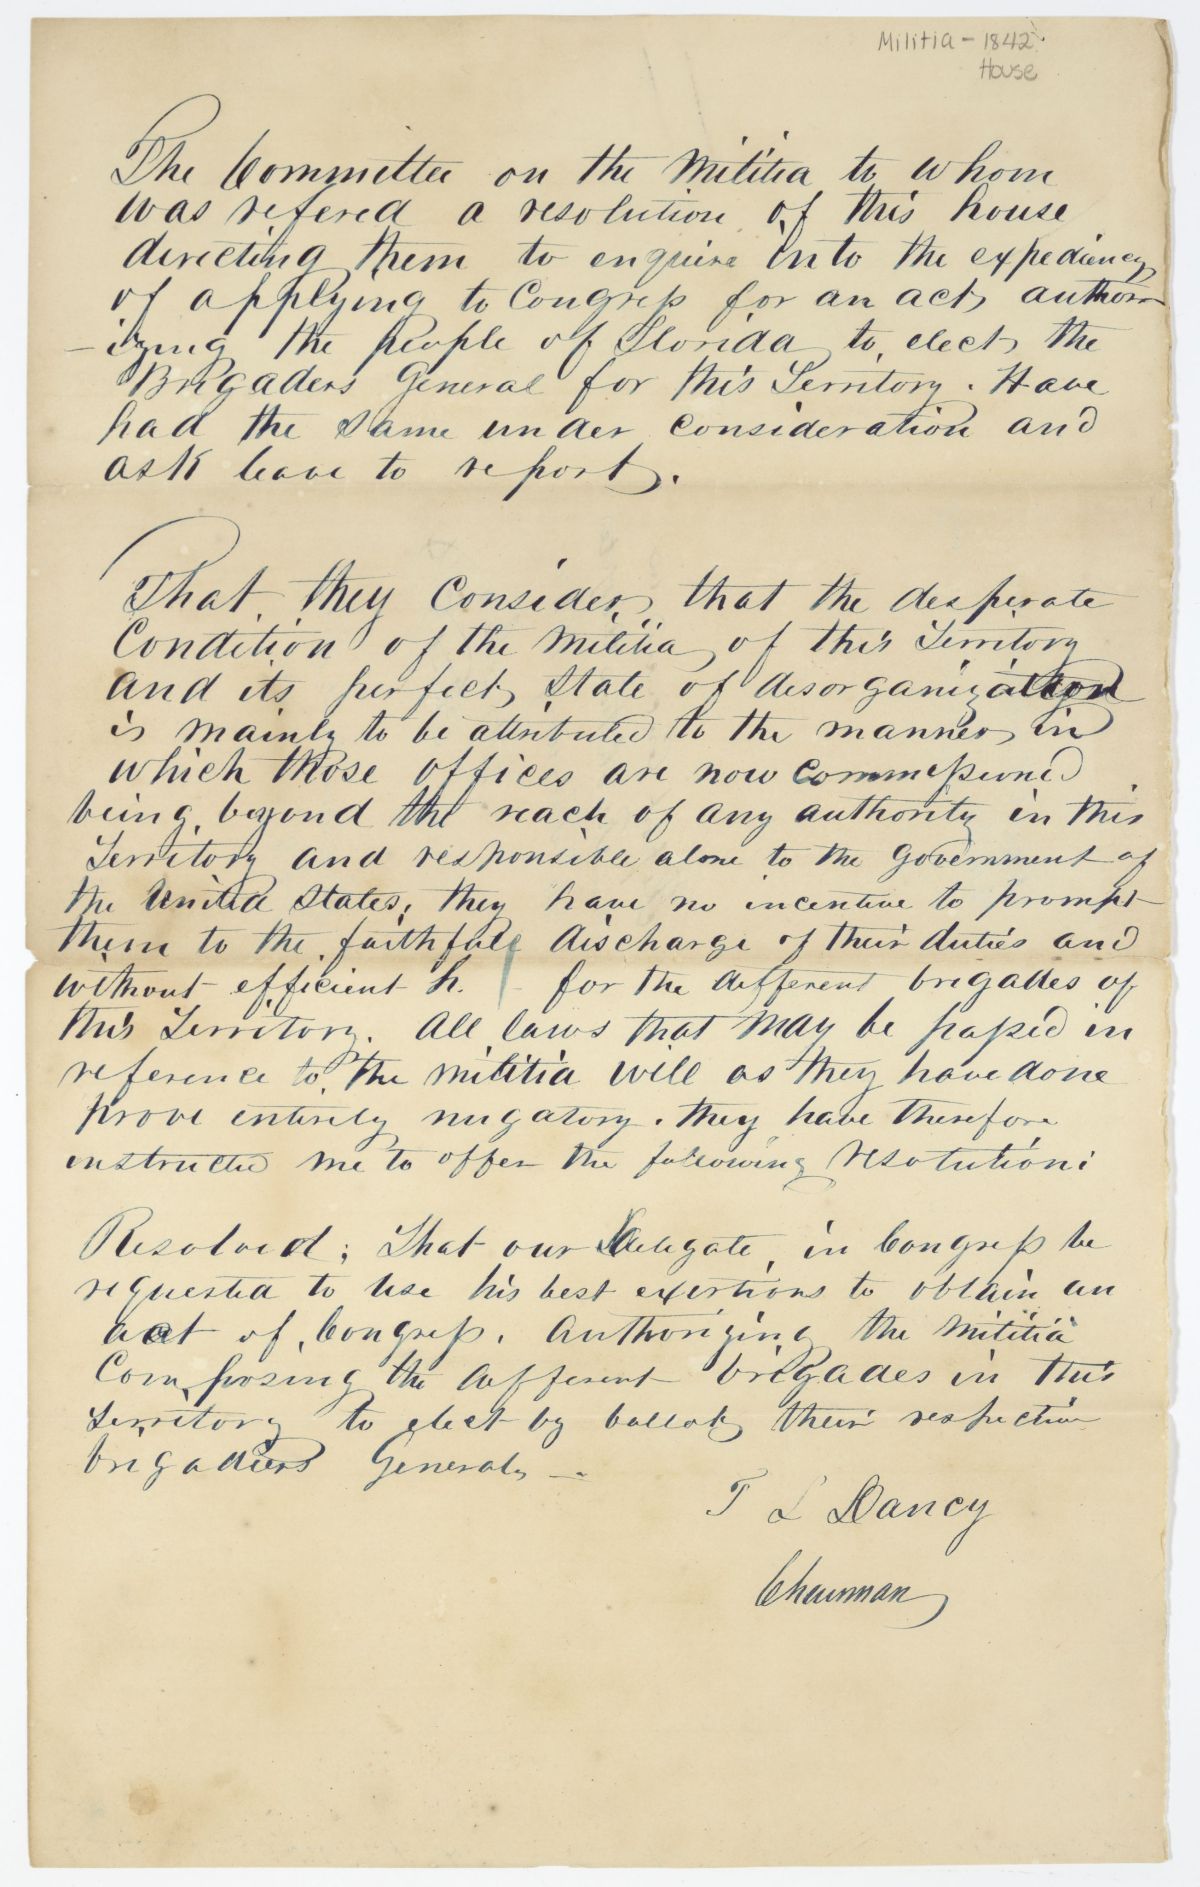 Militia - 1842
House
The Committee on the Militia to whom
was refered a resolution of this house
directing them to enquire into the expediency
of applying to Congress for an act author-
-izing the people of Florida to elect the
Brigaders General for this Territory. Have
had the same under consideration and
ask leave to report.
That they Consider that the desperate
Condition of the Militia of this Territory
and its perfect State of disorganization
is mainly to be attributed to the manner in
which those offices are now commissioned
being beyond the reach of any authority in this
Territory and responsible alone to the Government of
the United States, they have no incentive to prompt
them to the faithful discharge of their duties and
without efficient h. for the different brigades of
this Territory. All laws that may be passed in
reference to the militia will as they have done
prove entirely nugatory. they have therefore
instructed me to offer the following resolution:
Resolved; That our Delegate in Congress be
requested to use his best exertions to obtain an
act of Congress. Authorizing the Militia
Composing the different brigades in this
Territory to elect by ballot their respective
brigadiers Generals
T L Dancy
Chairman